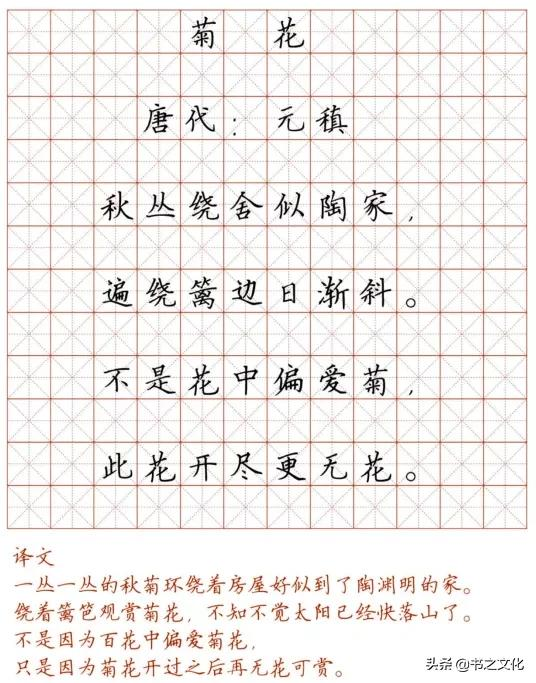 菊花
唐代：元稹
秋丛绕舍似陶家，
遍绕篱边日渐斜。
不是花中偏爱菊，
此花开尽更无花。
译文
一丛一丛的秋菊环绕着房屋好似到了陶渊明的家。
绕着篱笆观赏菊花，不知不觉太阳已经快落山了。
不是因为百花中偏爱菊花，
只是因为菊花开过之后再无花可赏。
头条 @书之文化